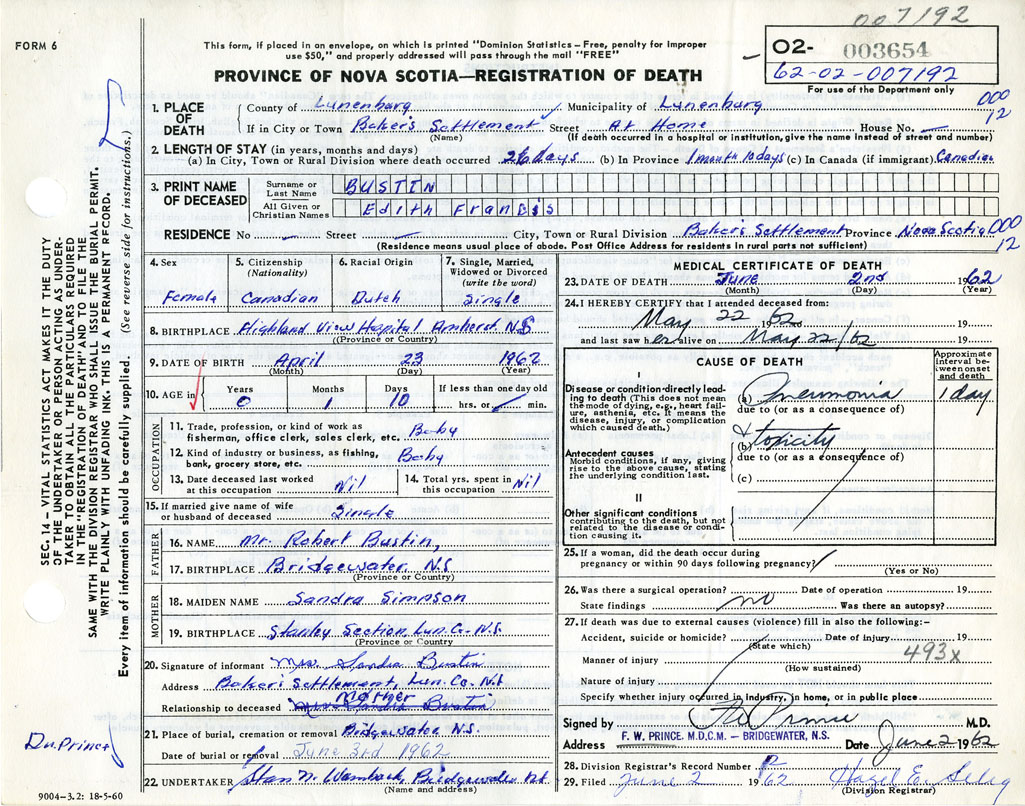 007192
FORM 6
This form, if placed in an envelope, on which is printed "Dominion Statistics — Free, penalty for improper
use $50," and properly addressed will pass through the mail "FREE"
PROVINCE OF NOVA SCOTIA—REGISTRATION OF DEATH
02- 003654
62-02-007192
For use of the Department only
000
12
SEC. 14 — VITAL STATISTICS ACT MAKES IT THE DUTY
OF THE UNDERTAKER OR PERSON ACTING AS UNDER-
TAKER TO OBTAIN THE PARTICULARS REQUIRED
IN THE "REGISTRATION OF DEATH" AND TO FILE THE
SAME WITH THE DIVISION REGISTRAR WHO SHALL ISSUE THE BURIAL PERMIT.
WRITE PLAINLY WITH UNFADING INK. THIS IS A PERMANENT RECORD.
Every item of information should be carefully supplied. (See reverse side for instructions.)
1. PLACE OF DEATH
County of Lunenburg Municipality of Lunenburg
If in City or Town Baker's Settlement Street At Home House No. —
(Name) (If death occurred in a hospital or institution, give the name instead of street and number)
2. LENGTH OF STAY (in years, months and days)
(a) In City, Town or Rural Division where death occurred days (b) In Province 1 month 10 days (c) In Canada (if immigrant) Canadian
3. PRINT NAME OF DECEASED
Surname or Last Name BUSTIN
All Given or Christian Names Edith Francis
RESIDENCE No — Street — City, Town or Rural Division Baker's Settlement Province Nova Scotia
000
12
(Residence means usual place of abode. Post Office Address for residents in rural parts not sufficient)
4. Sex
Female
5. Citizenship
(Nationality)
Canadian
6. Racial Origin
Dutch
7. Single, Married,
Widowed or Divorced
(write the word)
Single
8. BIRTHPLACE Highland View Hospital Amherst NS
(Province or Country)
9. DATE OF BIRTH April 23 1962
(Month) (Day) (Year)
10. AGE in Years Months Days If less than one day old
0 1 10 hrs. or min.
OCCUPATION
11. Trade, profession, or kind of work as
fisherman, office clerk, sales clerk, etc. Baby
12. Kind of industry or business, as fishing,
bank, grocery store, etc. Baby
13. Date deceased last worked
at this occupation Nil
14. Total yrs. spent in
this occupation Nil
15. If married give name of wife
or husband of deceased Single
FATHER
16. NAME Mr. Robert Bustin,
17. BIRTHPLACE Bridgewater N.S
(Province or Country)
MOTHER
18. MAIDEN NAME Sandra Simpson
19. BIRTHPLACE Stanley Section, Lun. Co. N.S.
(Province or Country)
20. Signature of informant Mrs. Sandra Bustin
Address Baker's Settlement, Lun. Co. N.S
Mother
Relationship to deceased Mrs Sandra Bustin
21. Place of burial, cremation or removal Bridgewater N.S.
Date of burial or removal June 3rd 1962
22. UNDERTAKER Stan N. Wamback, Bridgewater N.S.
(Name and address)
Dr. Prince
9004-3.2: 18-5-60
MEDICAL CERTIFICATE OF DEATH
23. DATE OF DEATH June 2nd 1962
(Month) (Day) (Year)
24. I HEREBY CERTIFY that I attended deceased from:
May 22 1962 19
and last saw her alive on May 22/62 19
CAUSE OF DEATH
Approximate
interval be-
tween onset
and death
I
Disease or condition directly lead-
ing to death (This does not mean
the mode of dying, e.g., heart fail-
ure, asthenia, etc. It means the
disease, injury, or complication
which caused death.)
(a) Pneumonia 1 day
due to (or as a consequence of)
Antecedent causes
Morbid conditions, if any, giving
rise to the above cause, stating
the underlying condition last.
(b) & toxicity
due to (or as a consequence of)
(c)
II
Other significant conditions
contributing to the death, but not
related to the disease or condi-
tion causing it.
25. If a woman, did the death occur during
pregnancy or within 90 days following pregnancy?
(Yes or No)
26. Was there a surgical operation? Date of operation 19
State findings no Was there an autopsy?
27. If death was due to external causes (violence) fill in also the following:—
Accident, suicide or homicide? Date of injury 19
(State which)
493x
Manner of injury
(How sustained)
Nature of injury
Specify whether injury occurred in industry, in home, or in public place
Signed by FW Prince M.D.
Address F. W. PRINCE. M.D.C.M. — BRIDGEWATER, N.S. Date June 2 1962
28. Division Registrar's Record Number
29. Filed June 2 1962 Hazel E. Selig
(Division Registrar)